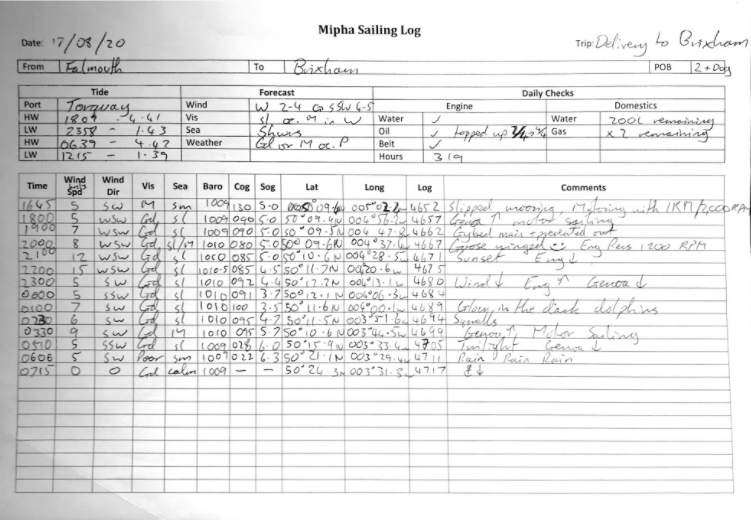 Mipha Sailing Log
Date: 17/08/20 Trip: Delivery to Brixham
From Falmouth To Brixham POB 2 + Dog
Tide Forecast Daily Checks
Port Torquay Wind W 2-4 SSW 4-5 Engine Domestics
HW 1809 - 4.41 Vis Water ✓ Water 200L remaining
LW 2358 - 1.43 Sea Oil ✓ topped up Gas x 2 remaining
HW 0639 - 4.42 Weather Belt ✓
LW 1215 - 1.39 Hours 319
Time Wind Spd Wind Dir Vis Sea Baro Cog Sog Lat Long Log Comments
1645 5 SW M sm 1009 130 5.0 4652 Slipped mooring, Motoring with 2000 RPM
1800 5 WSW Gd sl 1009 090 5.0 50°09.4N 4657 Genoa ↑ motor sailing
1900 7 WSW Gd sl 1009 090 5.0 50°09.5N 4662 Gybed main
2000 8 WSW Gd sl/M 1010 080 5.0 50°09.6N 004°37. 4667 Goose winged Eng Revs 1200 RPM
2100 12 WSW Gd sl 1010 085 5.0 50°10.6N 004°28.5 4671 Sunset Eng ↓
2200 15 WSW Gd sl 1010.5 085 4.5 50°11.7N 4675
2300 5 SW Gd sl 1010 092 4.4 50°12.2N 004°13.1 4680 Wind ↓ Eng ↑ Genoa ↓
0000 5 SSW Gd sl 1010 091 3.7 50°12.1N 004°06.3 4684
0100 7 SW Gd sl 1010 100 2.5 50°11.6N 4689 Glow in the dark dolphins
6 SW Gd sl 1010 095 4.7 50°11.5N 003°51.6 4694 Squalls
0330 9 SW Gd M 1010 095 5.7 50°10.6N 003°44.5 4699 Genoa ↑ Motor Sailing
0510 5 SSW Gd sl 1009 028 6.0 50°15.9N 003°33.4 4705 Twilight Genoa ↓
0606 5 SW Poor sm 1009 022 6.3 50°21.1N 003°29. 4711 Rain Rain Rain
0715 0 0 Gd calm 1009 - - 50°24. 003°31.3 4717 ↓